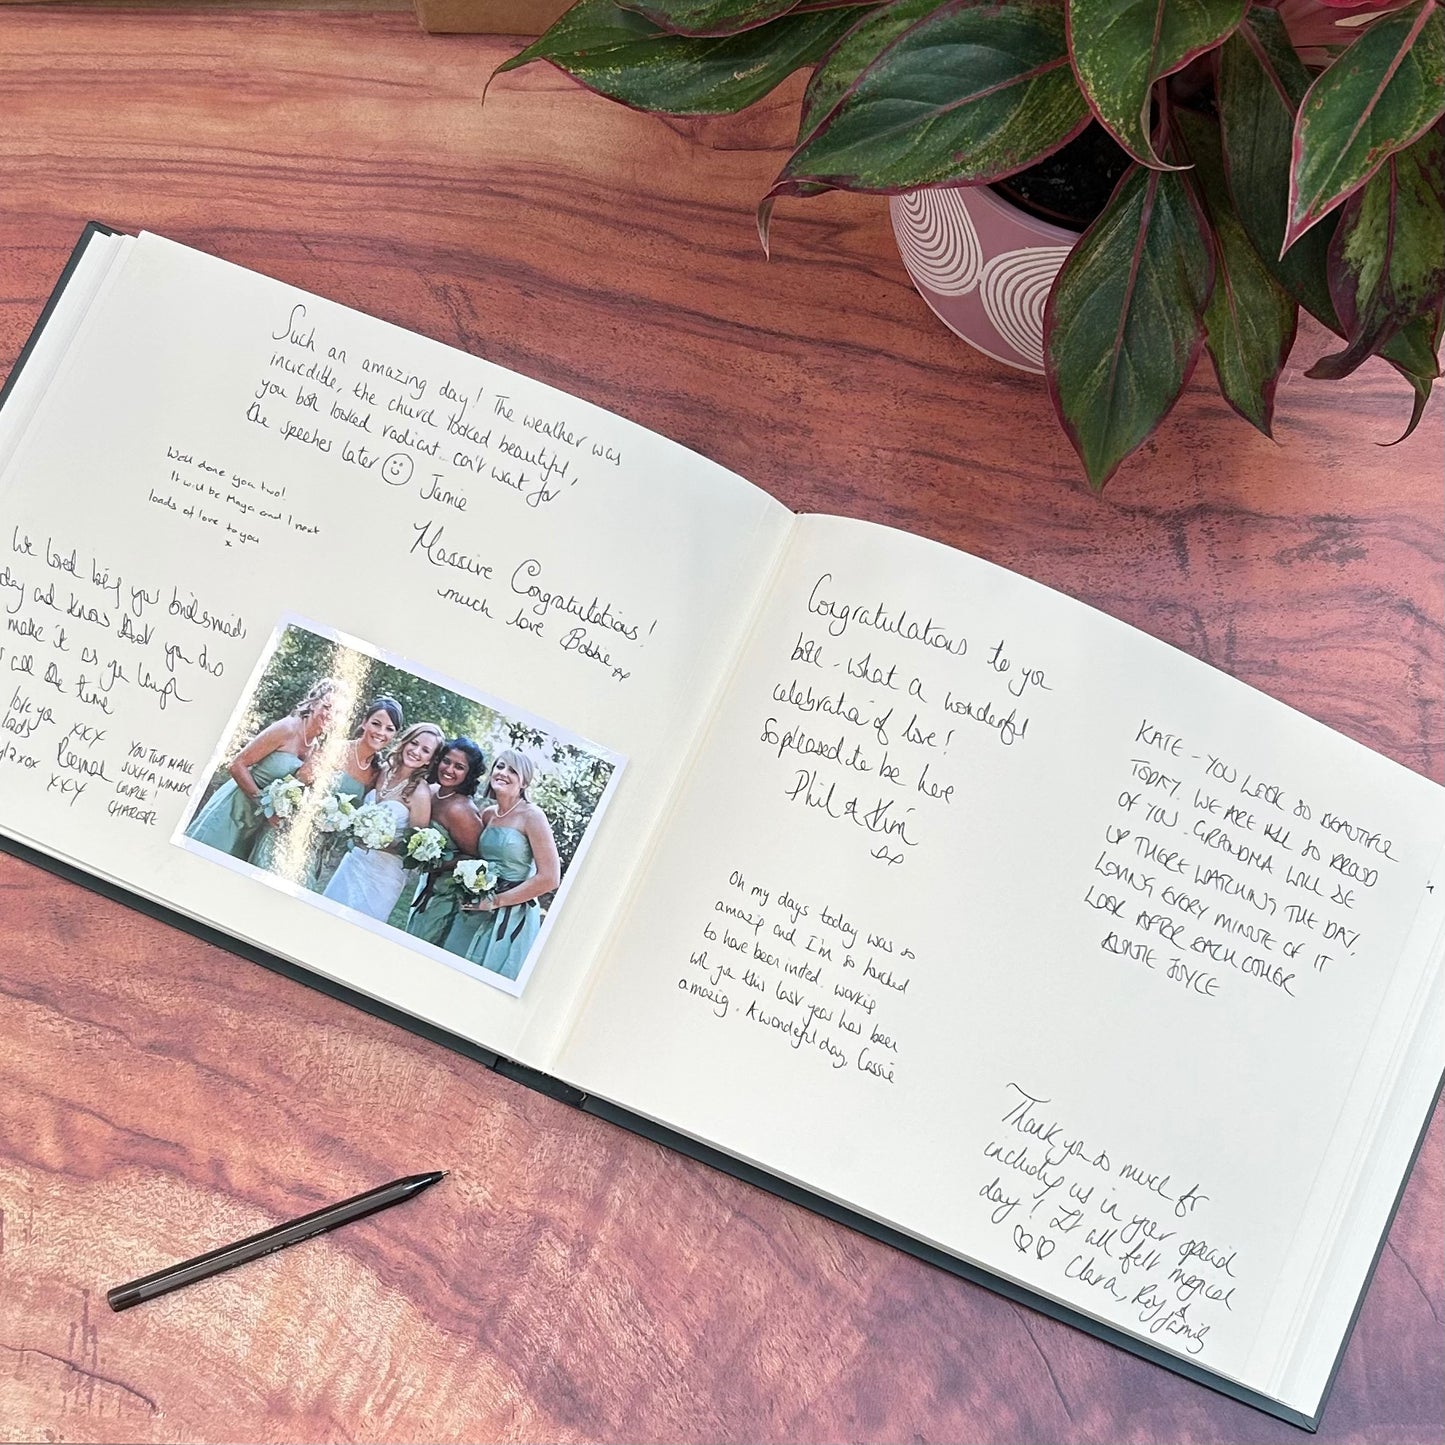 Such an amazing day! The weather was
incredible, the church looked beautiful,
you both looked radiant.. can't wait for
the speeches later
Jamie
Well done you two!
It will be Maya and I next
loads of love to you
x
Massive Congratulations!
much love Bobbie xx
We loved being your bridesmaids
day and know that you two
make it as you laugh
all the time
love you xxx
xxx
YOU TWO MAKE
SUCH A WINNER
COUPLE!
Congratulations to you
both - what a wonderful
celebration of love!
So pleased to be here
Phil & Kim
xx
Oh my days today was so
amazing and I'm so
to have been invited. working
with you this last year has been
amazing. A wonderful day, Cassie
KATE - YOU LOOK SO BEAUTIFUL
TODAY. WE ARE ALL SO PROUD
OF YOU. GRANDMA WILL BE
UP THERE WATCHING THE DAY,
LOVING EVERY MINUTE OF IT
LOOK AFTER EACH OTHER
AUNTIE JOYCE
Thank you so much for
including us in your special
day! It all felt magical
Clara, Roy &
family